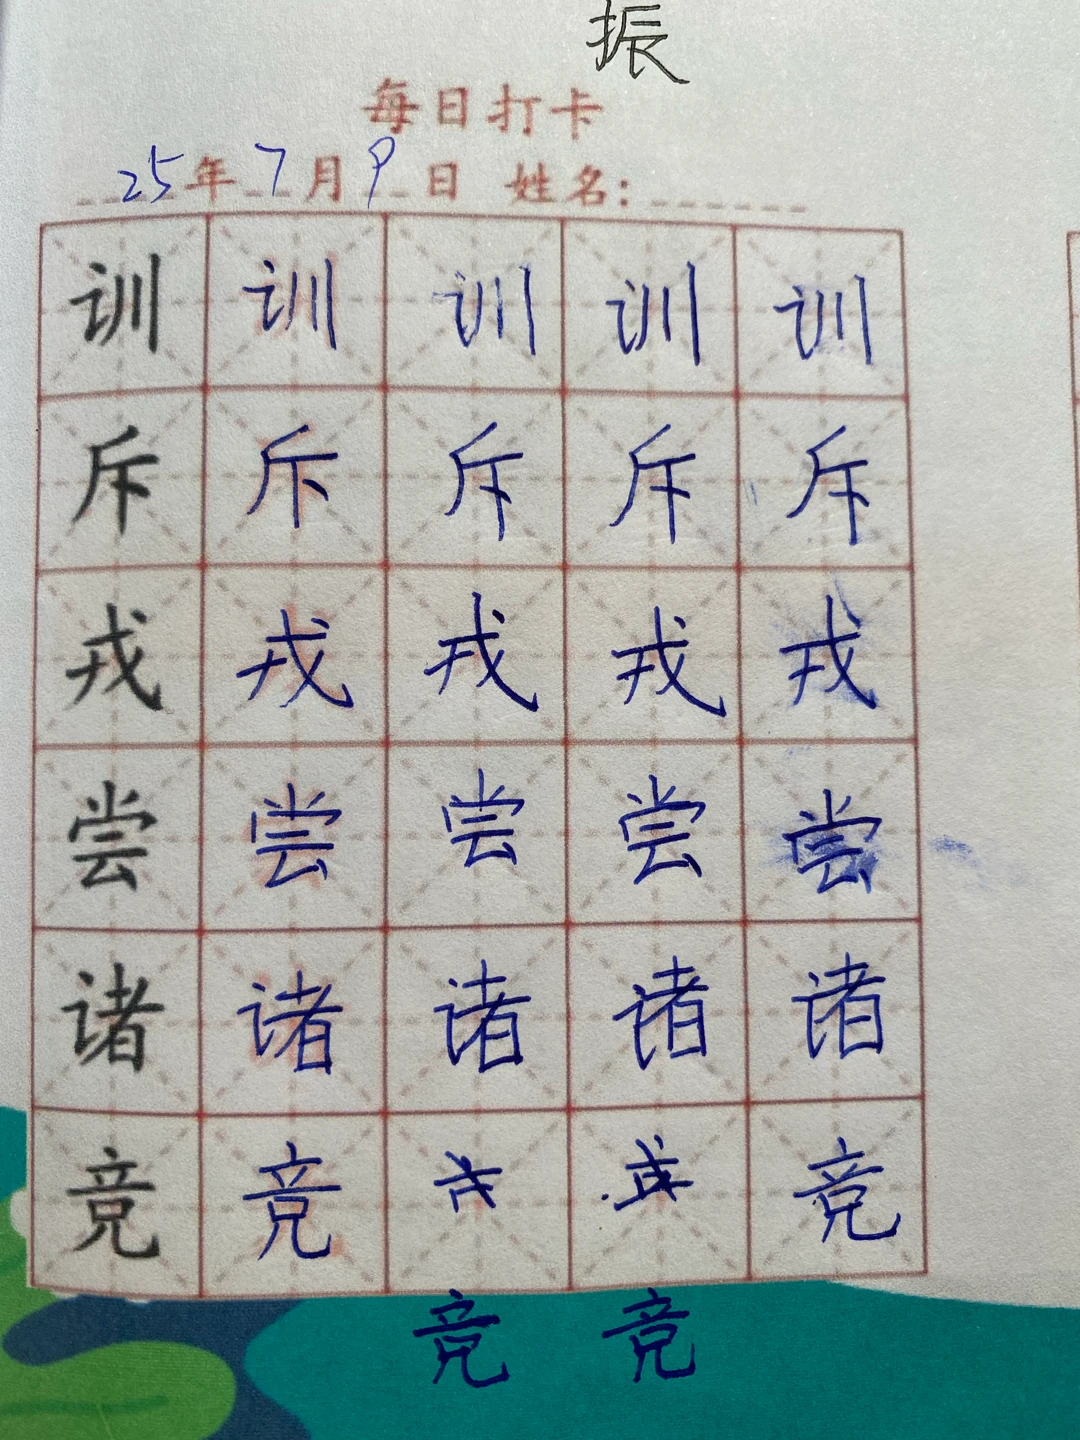 振
每日打卡
25年7月9日 姓名:
训 训 训 训 训
斥 斥 斥 斥 斥
戎 戎 戎 戎 戎
尝 尝 尝 尝 尝
诸 诸 诸 诸 诸
竞 竞 竞
竞 竞